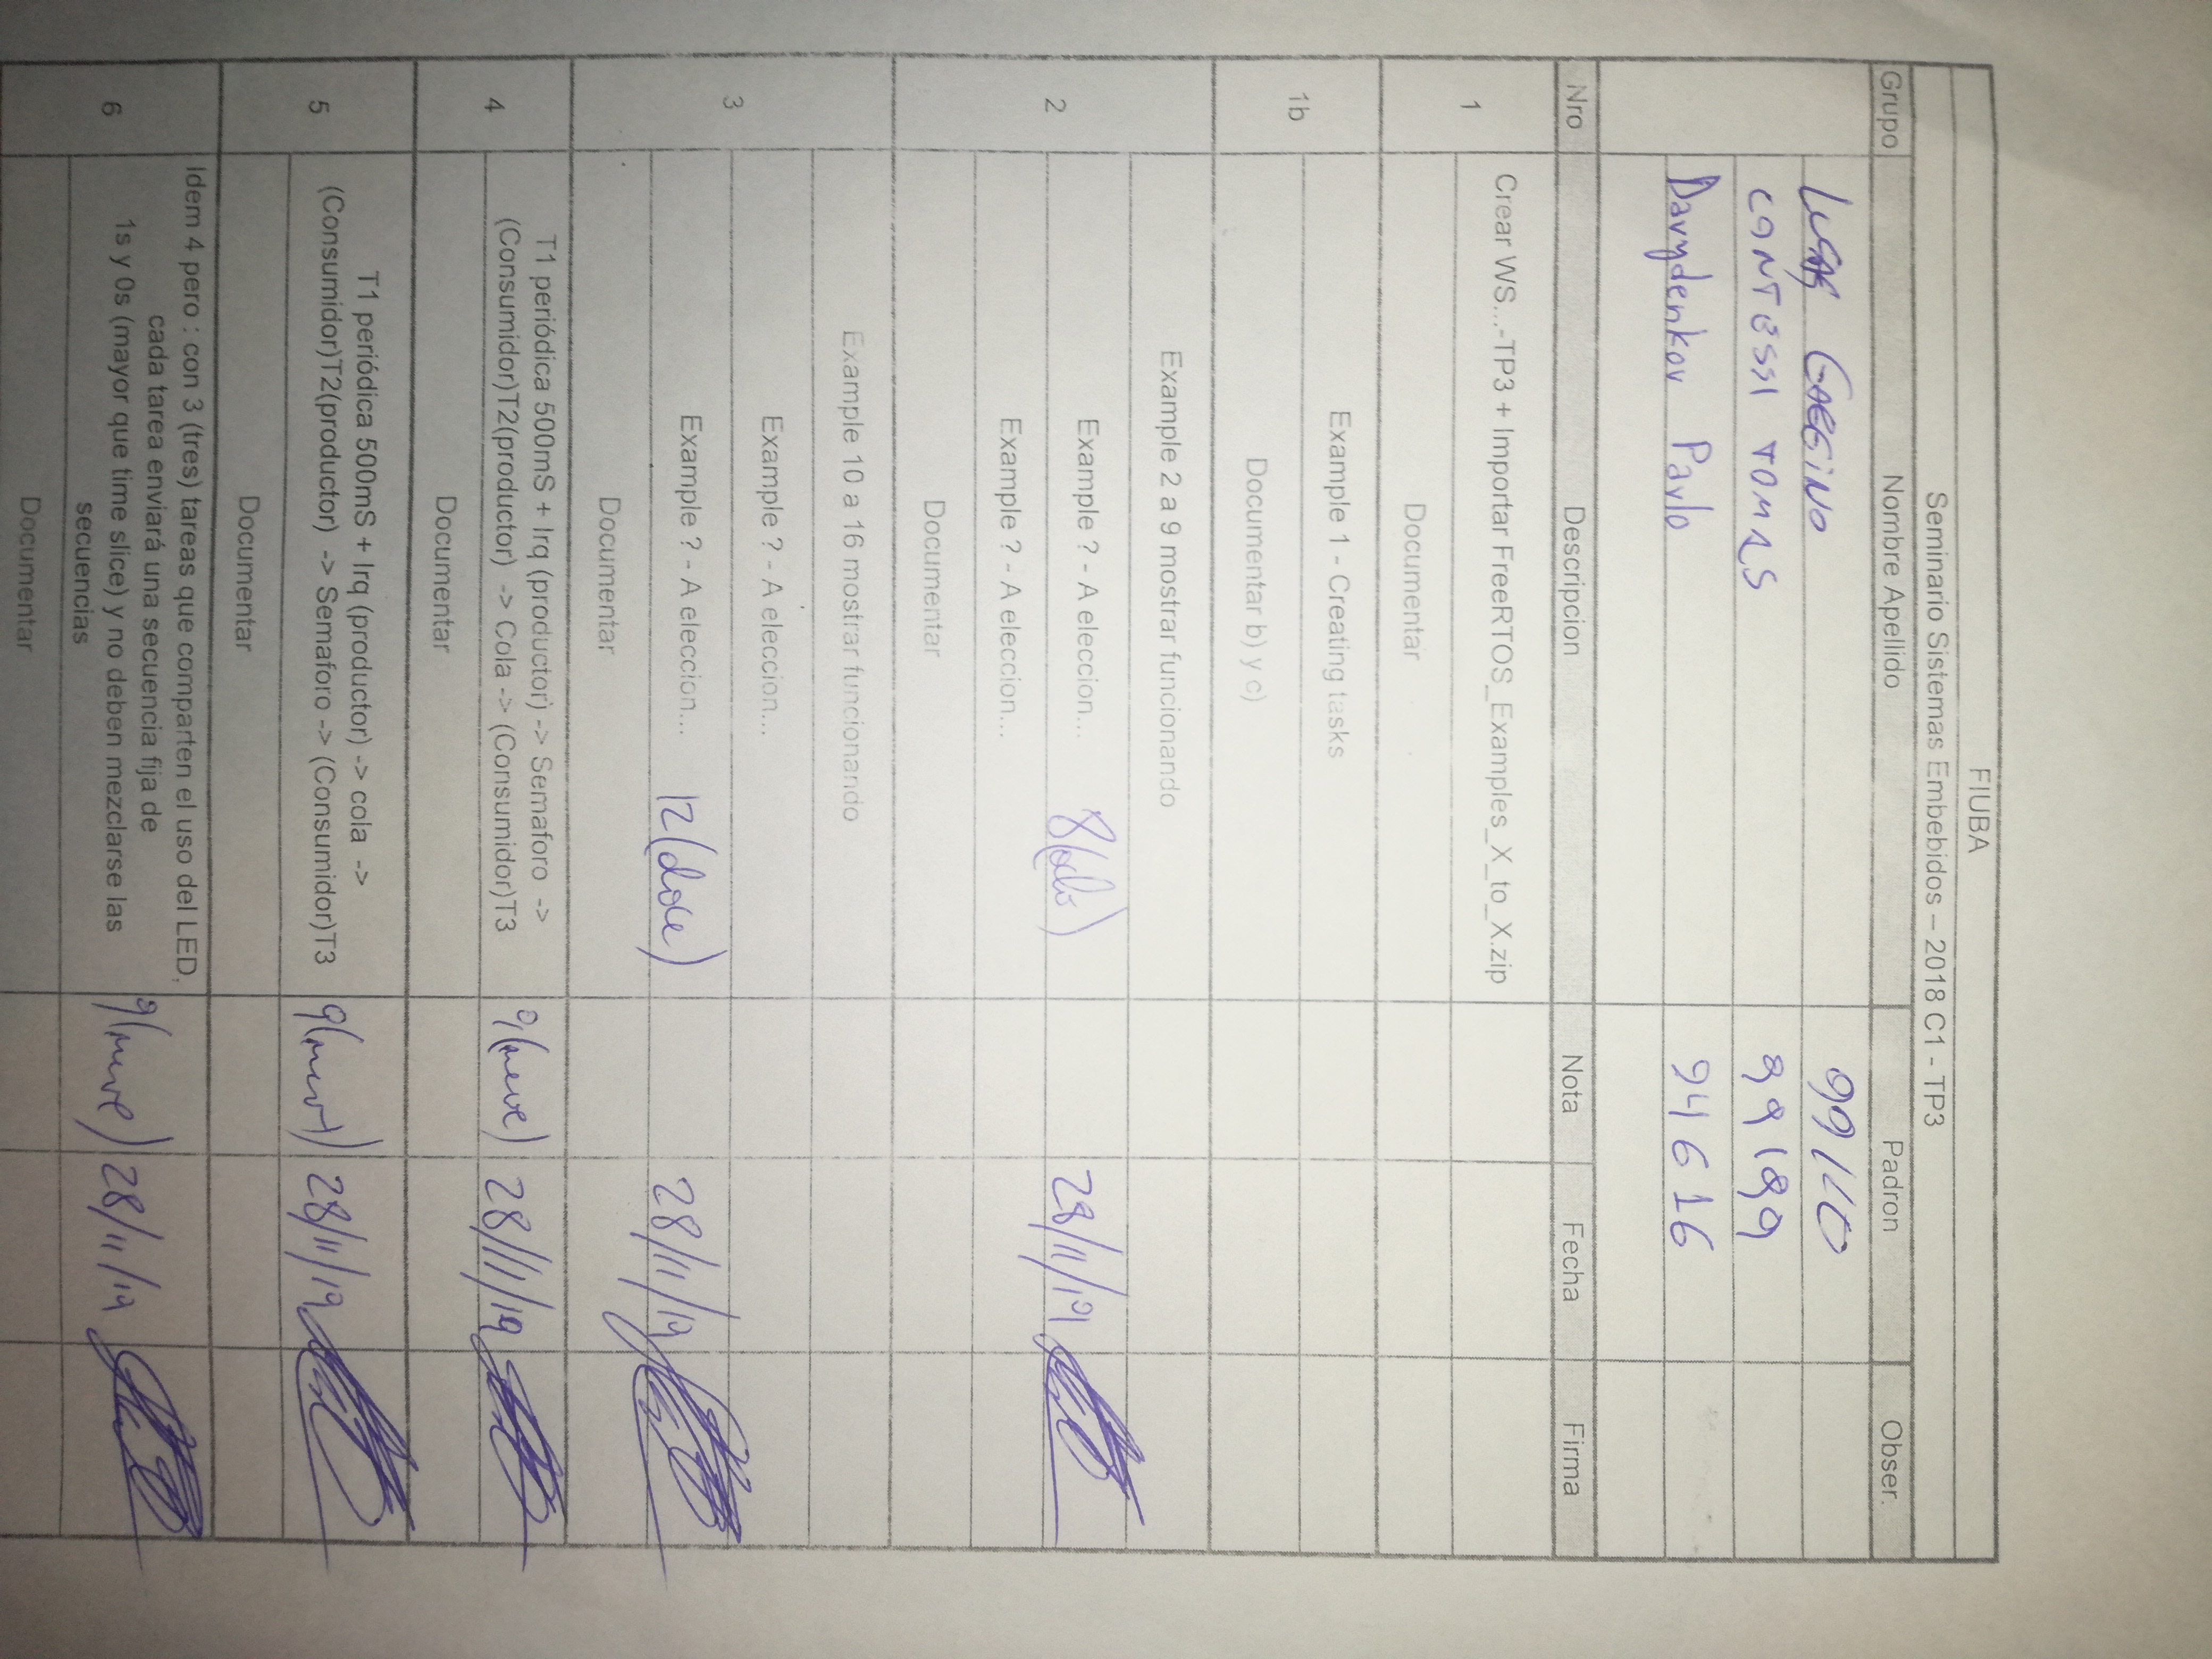 FIUBA
Seminario Sistemas Embebidos – 2018 C1 - TP3
Grupo Nombre Apellido Padron Obser.
99110
CONTESSI TOMAS 99199
Davydenkov Pavlo 94616
Nro Descripcion Nota Fecha Firma
1 Crear WS...-TP3 + Importar FreeRTOS_Examples_X_to_X.zip
Documentar
1b Example 1 - Creating tasks
Documentar b) y c)
2 Example 2 a 9 mostrar funcionando
Example ? - A eleccion... 28/11/19
Example ? - A eleccion...
Documentar
3 Example 10 a 16 mostrar funcionando
Example ? - A eleccion...
Example ? - A eleccion... 12 (doce) 28/11/19
Documentar
4 T1 periódica 500mS + Irq (productor) -> Semaforo ->
(Consumidor)T2(productor) -> Cola -> (Consumidor)T3 9 (nueve) 28/11/19
Documentar
5 T1 periódica 500mS + Irq (productor) -> cola ->
(Consumidor)T2(productor) -> Semaforo -> (Consumidor)T3 9 (nueve) 28/11/19
Documentar
6 Idem 4 pero : con 3 (tres) tareas que comparten el uso del LED,
cada tarea enviará una secuencia fija de
1s y 0s (mayor que time slice) y no deben mezclarse las
secuencias 9 (nueve) 28/11/19
Documentar